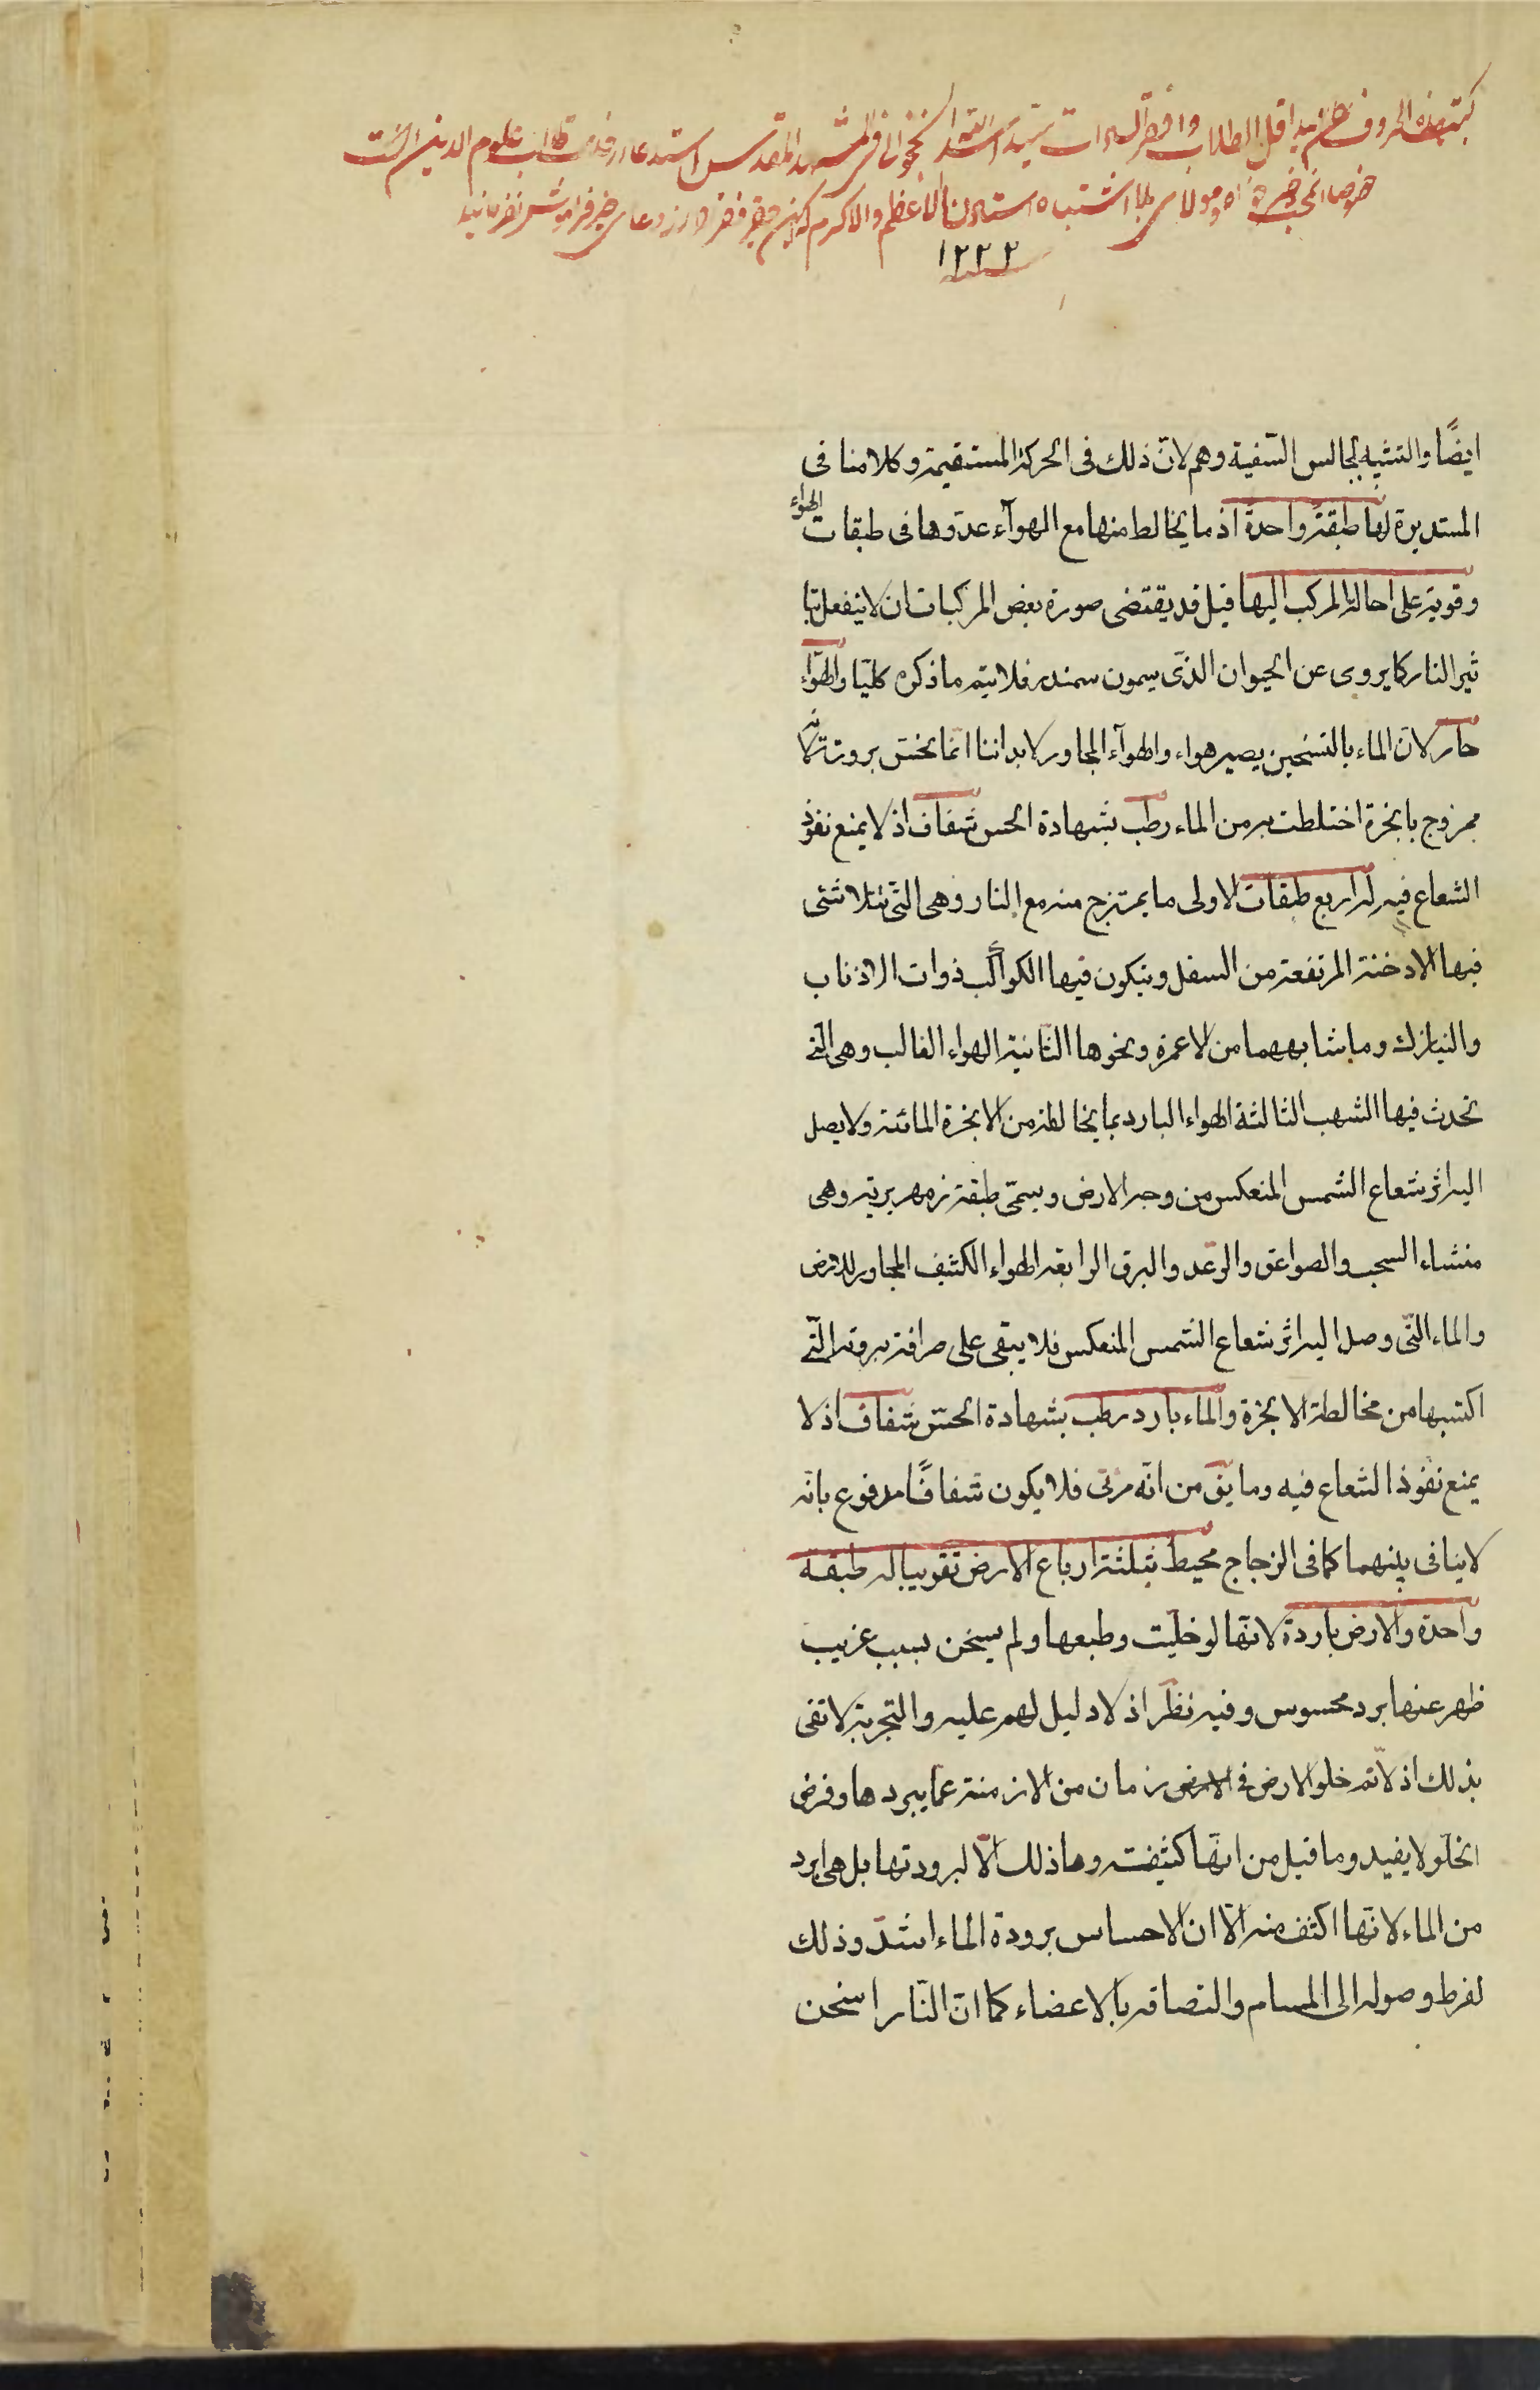 كتبت هذه الحروف اقل الطلاب وافقر السادات سيد اسد الله النخجوانى فى المشهد المقدس استدعا از طلاب علوم الدين انست
استادنا الاعظم والاكرم كه اين حقير فقير را از دعاى خير فراموش نفرمانيد
١٢٢٢
ايضًا والتشبيه لجالس السّفينة وهم لانّ ذلك فى الحركة المستقيمة وكلامنا فى
المستديرة لها طبقة واحدة اذ ما يخالط منها مع الهوآء عدّوها فى طبقات الهواء
وقوية على احالة المركب اليها قيل قد يقتضى صورة بعض المركبات ان لا ينفعل بتا
ثير النار كما يروى عن الحيوان الذّى يسمون سمندر فلا يتم ما ذكره كليّا والهوآء
حار لانّ الماء بالتسخين يصير هواء والهوآء المجاور لابداننا انّما نحسّ برودته لانه
ممزوج بابخرة اختلطت به من الماء رطب بشهادة الحس شفاف اذ لا يمنع نفوذ
الشعاع فيه له اربع طبقات الاولى ما يمتزج منه مع النار وهى التّى تتلاشئى
فيها الادخنة المرتفعة من السفل ويتكون فيها الكواكب ذوات الاذناب
والنيازك وما شابههما من الاعمدة ونحوها الثّانية الهواء الغالب وهى الّتى
تحدث فيها الشهب الثالثة الهواء البارد بما يخالطه من الابخرة المائية ولا يصل
اليه اثر شعاع الشمس المنعكس من وجه الارض ويسمّى طبقة زمهريرية وهى
منشاء السحب والصواعق والرّعد والبرق الرابعة الهواء الكثيف المجاور للارض
والماء التّى وصل اليه اثر شعاع الشمس المنعكس فلا يبقى على صرافة برودته الّتى
اكتسبها من مخالطة الابخرة والماء بارد رطب بشهادة الحسّ شفاف اذ لا
يمنع نفوذ الشعاع فيه وما يق من انّه مرئى فلا يكون شفافًا مدفوع بانّه
لا ينافى بينهما كما فى الزجاج محيط بثلثة ارباع الارض تقريبا له طبقة
واحدة والارض باردة لانّها لو خلّيت وطبعها ولم يسخن بسبب غريب
ظهر عنها برد محسوس وفيه نظر اذ لا دليل لهم عليه والتجربة لا تفى
بذلك اذ لانم خلو الارض فى زمان من الازمنة عمّا يبردها وفرض
الخلّو لا يفيد وما قيل من انّها كثيفة وما ذلك الّا لبرودتها بل هى ابرد
من الماء لانّها اكثف منه الّا ان الاحساس برودة الماء اشدّ وذلك
لفرط وصوله الى المسام والتصاقه بالاعضاء كما انّ النّار اسخن